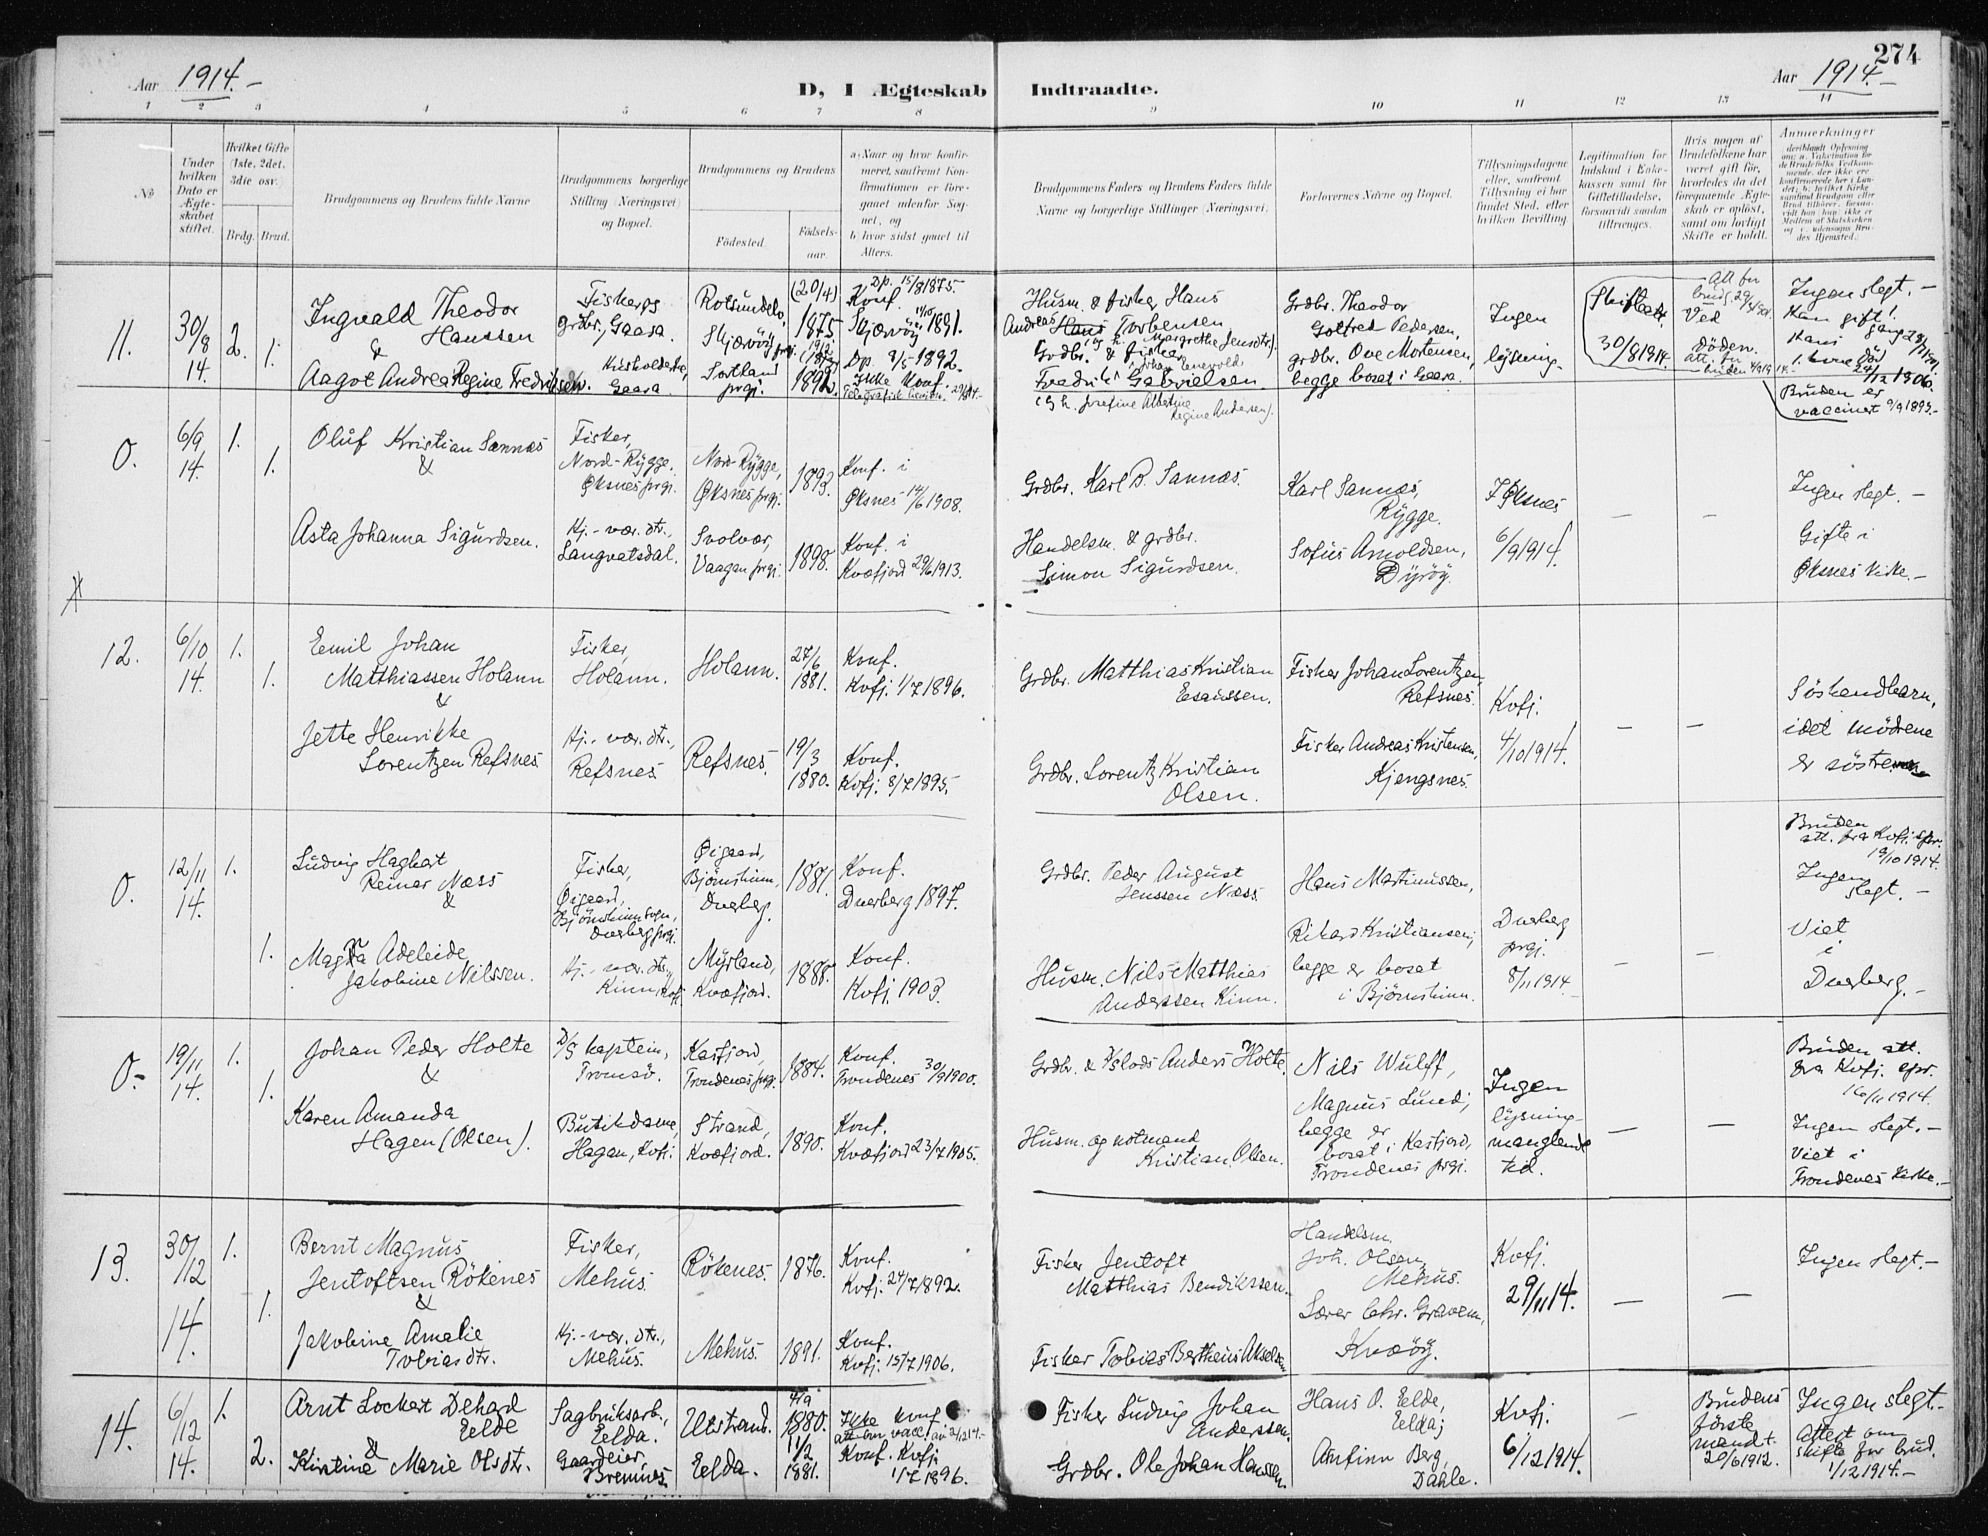 274
Aar 1914.-
D, I Ægteskab Indtraadte.
Aar 1914.-
1 2 3 4 5 6 7 8 9 10 11 12 13 14
No
Under hvilken Dato er Ægteskabet stiftet.
Hvilket Gifte (1ste, 2det, 3die osv.
Brdg. Brud.
Brudgommens og Brudens fulde Navne
Brudgommens borgerlige Stilling (Næringsvei) og Bopæl.
Brudgommens og Brudens
Födested.
Födselsaar.
a. Naar og hvor konfirmeret, saafremt Konfirmationen er foregaaet udenfor Sognet, og
b. hvor sidst gaaet til Alters.
Brudgommens Faders og Brudens Faders fulde Navne og borgerlige Stillinger (Næringsvei)
Forlovernes Navne og Bopæl.
Tillysningsdagene eller, saafremt Tillysning ei har fundet Sted, efter hvilken Bevilling
Legitimation for Indskud i Enkekassen samt for Giftetilladelse, forsaavidt saadan tiltrænges.
Hvis nogen af Brudefolkene har været gift för, hvorledes da det foregaaende Ægteskab er oplöst, samt om lovligt Skifte er holdt.
Anmerkninger
11.
30/8
14.
2.
1.
Ingvald Theodor
Hanssen
&
Aagot Andrea Regine Fredriksen.
Fisker og
grdbr., Gaasa.
Husholderske,
Gaasa.
Rotsundelv,
Skjærvöy prgj.
Sortland
prgj.
(20/4)
1875
1892.
Dp. 15/8 1875.
Konf.
Skjærvöy 1891.
Dp. 8/5 1892.
Ikke konf.
Husm. & fisker Hans
Andreas Torbensen
Grdbr. & fisker
Fredrik Gabrielsen
Grdbr. Theodor
Gotfred Pedersen,
grdbr. Ove Mortensen,
begge bosat i Gaasa.
Ingen
lysning.
Skifteatt.
30/8 1914.
Ved
döden.
Ingen slegt.-
Kan gift!
Hans
1. kone död
24/12 1906.
Bruden er
vaccinert 9/9 1895.-
0.
6/9
14.
1.
1.
Oluf Kristian Sannæs
&
Asta Johanna Sigurdsen.
Fisker,
Nord-Rygge.
Øksnes prgj.
Hj.-vær. dtr.,
Langvatsdal.
Nord-Rygge,
Øksnes prgj.
Svolvær,
Vaagan prgj.
1893.
1898.
Konf. i
Øksnes 14/6 1908.
Konf. i
Kvæfjord 29/6 1913.
Grdbr. Karl B. Sannæs.
Handelsm. & grdbr.
Simon Sigurdsen.
Karl Sannæs,
Rygge.
Sofus Arnoldsen,
Dyröy.
I Øksnes
6/9 1914.
Ingen slegt.-
Gifte i
Øksnes kirke.-
12.
6/10
14.
1.
1.
Emil Johan
Matthiassen Holann
&
Jette Henrikke
Lorentzen Refsnes
Fisker,
Holann.
Hj.-vær. dtr.,
Refsnes
Holann.
Refsnes.
27/6
1881.
19/3
1880.
Konf.
Kvfj. 1/7 1896.
Konf.
Kvfj. 8/7 1895.
Grdbr. Matthias Kristian
Esaiassen.
Grdbr. Lorentz Kristian
Olsen.
Fisker Johan Lorentzen,
Refsnes.
Fisker Andreas Kristensen,
Kjengsnes.
Kvfj.
4/10 1914.
Söskendbarn,
idet mödrene
er söstre.
0.
12/11
14.
1.
1.
Ludvig Hagbart
Reinar Næss
&
Magna Adeleide
Jakobine Nilssen.
Fisker,
Øigaard,
Bjørnskinn sogn,
Dverberg prgj.
Hj.-vær. dtr.,
Kinn, Kvfj.
Øigaard,
Bjørnskinn,
Dverberg.
Myrland,
Kvæfjord.
1881.
1888.
Konf.
Dverberg 1897.
Konf.
Kvfj. 1903.
Grdbr. Peder August
Jenssen Næss.
Husm. Nils Matthias
Anderssen Kinn.
Hans Martinussen,
Rikard Kristiansen,
begge er bosat
i Bjørnskinn.
Dverberg
prgj.
8/11 1914.
Bruden
att. fra Kvfj. spr.
19/10 1914.
Ingen
slegt.-
Viet
i
Dverberg.-
0.-
19/11
14.
1.
1.
Johan Peder Holte
&
Karen Amanda
Hagen (Olsen).
D/S kaptein,
Tromsö.
Butikdame,
Hagan, Kvfj.
Kasfjord,
Trondenes prgj.
Strand,
Kvæfjord.
1884.
1890.
Konf.
Trondenes 30/9 1900.
Konf.
Kvæfjord 23/7 1905.
Grdbr. & Anders Holte.
Husm. og notmand
Kristian Olsen.
Nils Wulff,
Magnus Lund,
begge er
bosat i Kasfjord,
Trondenes prgj.
Ingen
lysning-
manglende
tid.
Bruden att.
fra Kvfj. spr.
16/11 1914.
Ingen slegt.-
Viet i
Trondenes kirke.-
13.
30/12
14.
1.
1.
Bernt Magnus
Jentoftsen Rökenes
&
Jakobine Amalie
Tobiasdtr.
Fisker,
Mehus.
Hj.-vær. dtr.,
Mehus.
Rökenes.
Mehus.
1876.
1891.
Konf.
Kvfj. 24/7 1892.
Konf.
Kvfj. 15/7 1906.
Fisker Jentoft
Matthias Bendikssen.
Fisker Tobias Bertheus Akselsen
Handelsm.
Joh. Olsen,
Mehus.
Lærer Gravem,
Kvæöy.
Kvfj.
29/11 14.
Ingen slegt.-
14.
6/12
14.
1.
2.
Arnt Lockert Dehard
Eelde
&
Kirstine Marie Olsdtr.
Sagbruksarb.,
Eelda.
Gaardeier,
Bremnes.
Utstrand.
Eelda.
4/9
1880.
11/2
1881.
Ikke konf.
att. om vacc. av 2/12 14.-
Konf. Kvfj.
1/7 1896.
Fisker Ludvig Johan
Anderssen.
Grdbr. Ole Johan Hanssen
Hans O. Eelde,
Eelda;
Arnfinn Berg,
Dahle.
Kvfj.
6/12 1914.
Brudens
förste
mand †.
20/6 1912.
Ingen slegt.-
Attest om
skifte for brud.
1/12 1914.-